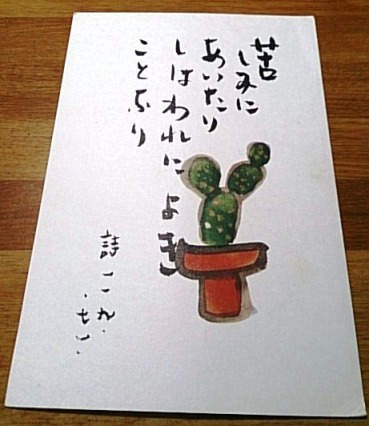 苦しみに
あいたり
しはわれによき
ことなり
詩一一九・
七一、